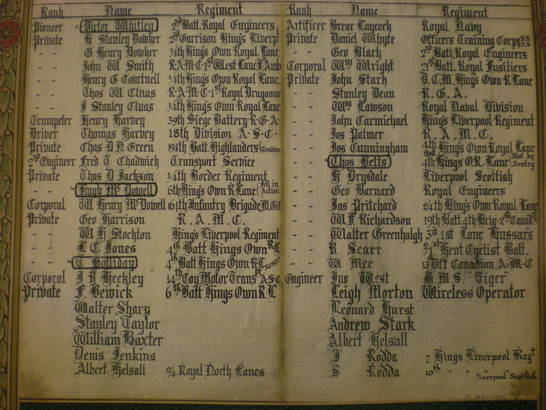 Rank Name Regiment
Pioneer Victor Whitley 2nd Batt Royal Engineers
Private H Stanley Dowker 2nd Garrison Kings Liverpl
" " G Henry Dowker 1/4th Kings Own Royal Lanc
" " John W Smith R.A.M.C. 1st West Lanc
" " Henry G 1/4th Kings Own Royal Lanc
" " Thos W Cluas R.A.M.C. 1st Royal Dragoons
" " J Stanley Cluas 1/4th Kings Own Royal Lanc
Trumpeter Henry Harvey Siege Battery R.G.A.
Driver Thomas Harvey 18th Division A.S.C.
Private Chas D.N. Green Batt Highlanders London
2nd Engineer Fred T Chadwick Transport Service
Private Thos D Jackson 1/4th Border Regiment
" " Hugh Mc Dowell Kings Own R Lanc Fell in Action
Corporal W Henry Mc Dowell 64th Infantry Brigade
Private Geo Harrison R.A.M.C.
" " W H Stockton Kings Liverpool Regiment
" " L C Jones Batt Kings Own R L
" " T Halliday Batt Kings Own R L
Corporal J R Heckley Coy Motor Trans A.S.C.
Private F. Bewick 6th Batt Kings Own R L
Walter Sharp
Stanley Taylor
William Baxter
Denis Jenkins
Albert Kelsall 2/4 Royal North Lancs
Rank Name Regiment
Artificer Brear Laycock Royal Navy
Private Daniel Whyte Officers Training Corps
" " Geo Black 2nd Batt Royal Engineers
Corporal Wm Wright 21st Batt. Royal Fusiliers
Private John Stark D.C.M. Kings Own R Lanc
" " Stanley Dean R.G.A.
" " Wm Lawson Royal Naval Division
" " John Carmichael Kings Liverpool Regiment
" " Jos Palmer R.A.M.C.
" " Jos Cunningham 4th Kings Own Royal Lanc
" " Thos Betts 4th Kings O R. Lanc Shot by Sentry
" " H Drysdale Liverpool Scottish
" " Geo Barnard Royal Engineers
" " Jas Pritchard Kings Own Royal Lanc
" " W F Richardson 19th Batt 4th Brig
" " Walter Greenhalgh Hussars
" " R Scarr Kent Cyclist Batt.
" " W Mee Canadian A.M.C
Engineer Jno West H.M.S. Tiger
Leigh Morton Wireless Operator
Leonard Hurst
Andrew Stark
Albert Kelsall
J Rodda 7 Kings Liverpool Regt
S Rodda 10th " " Liverpool Scottish